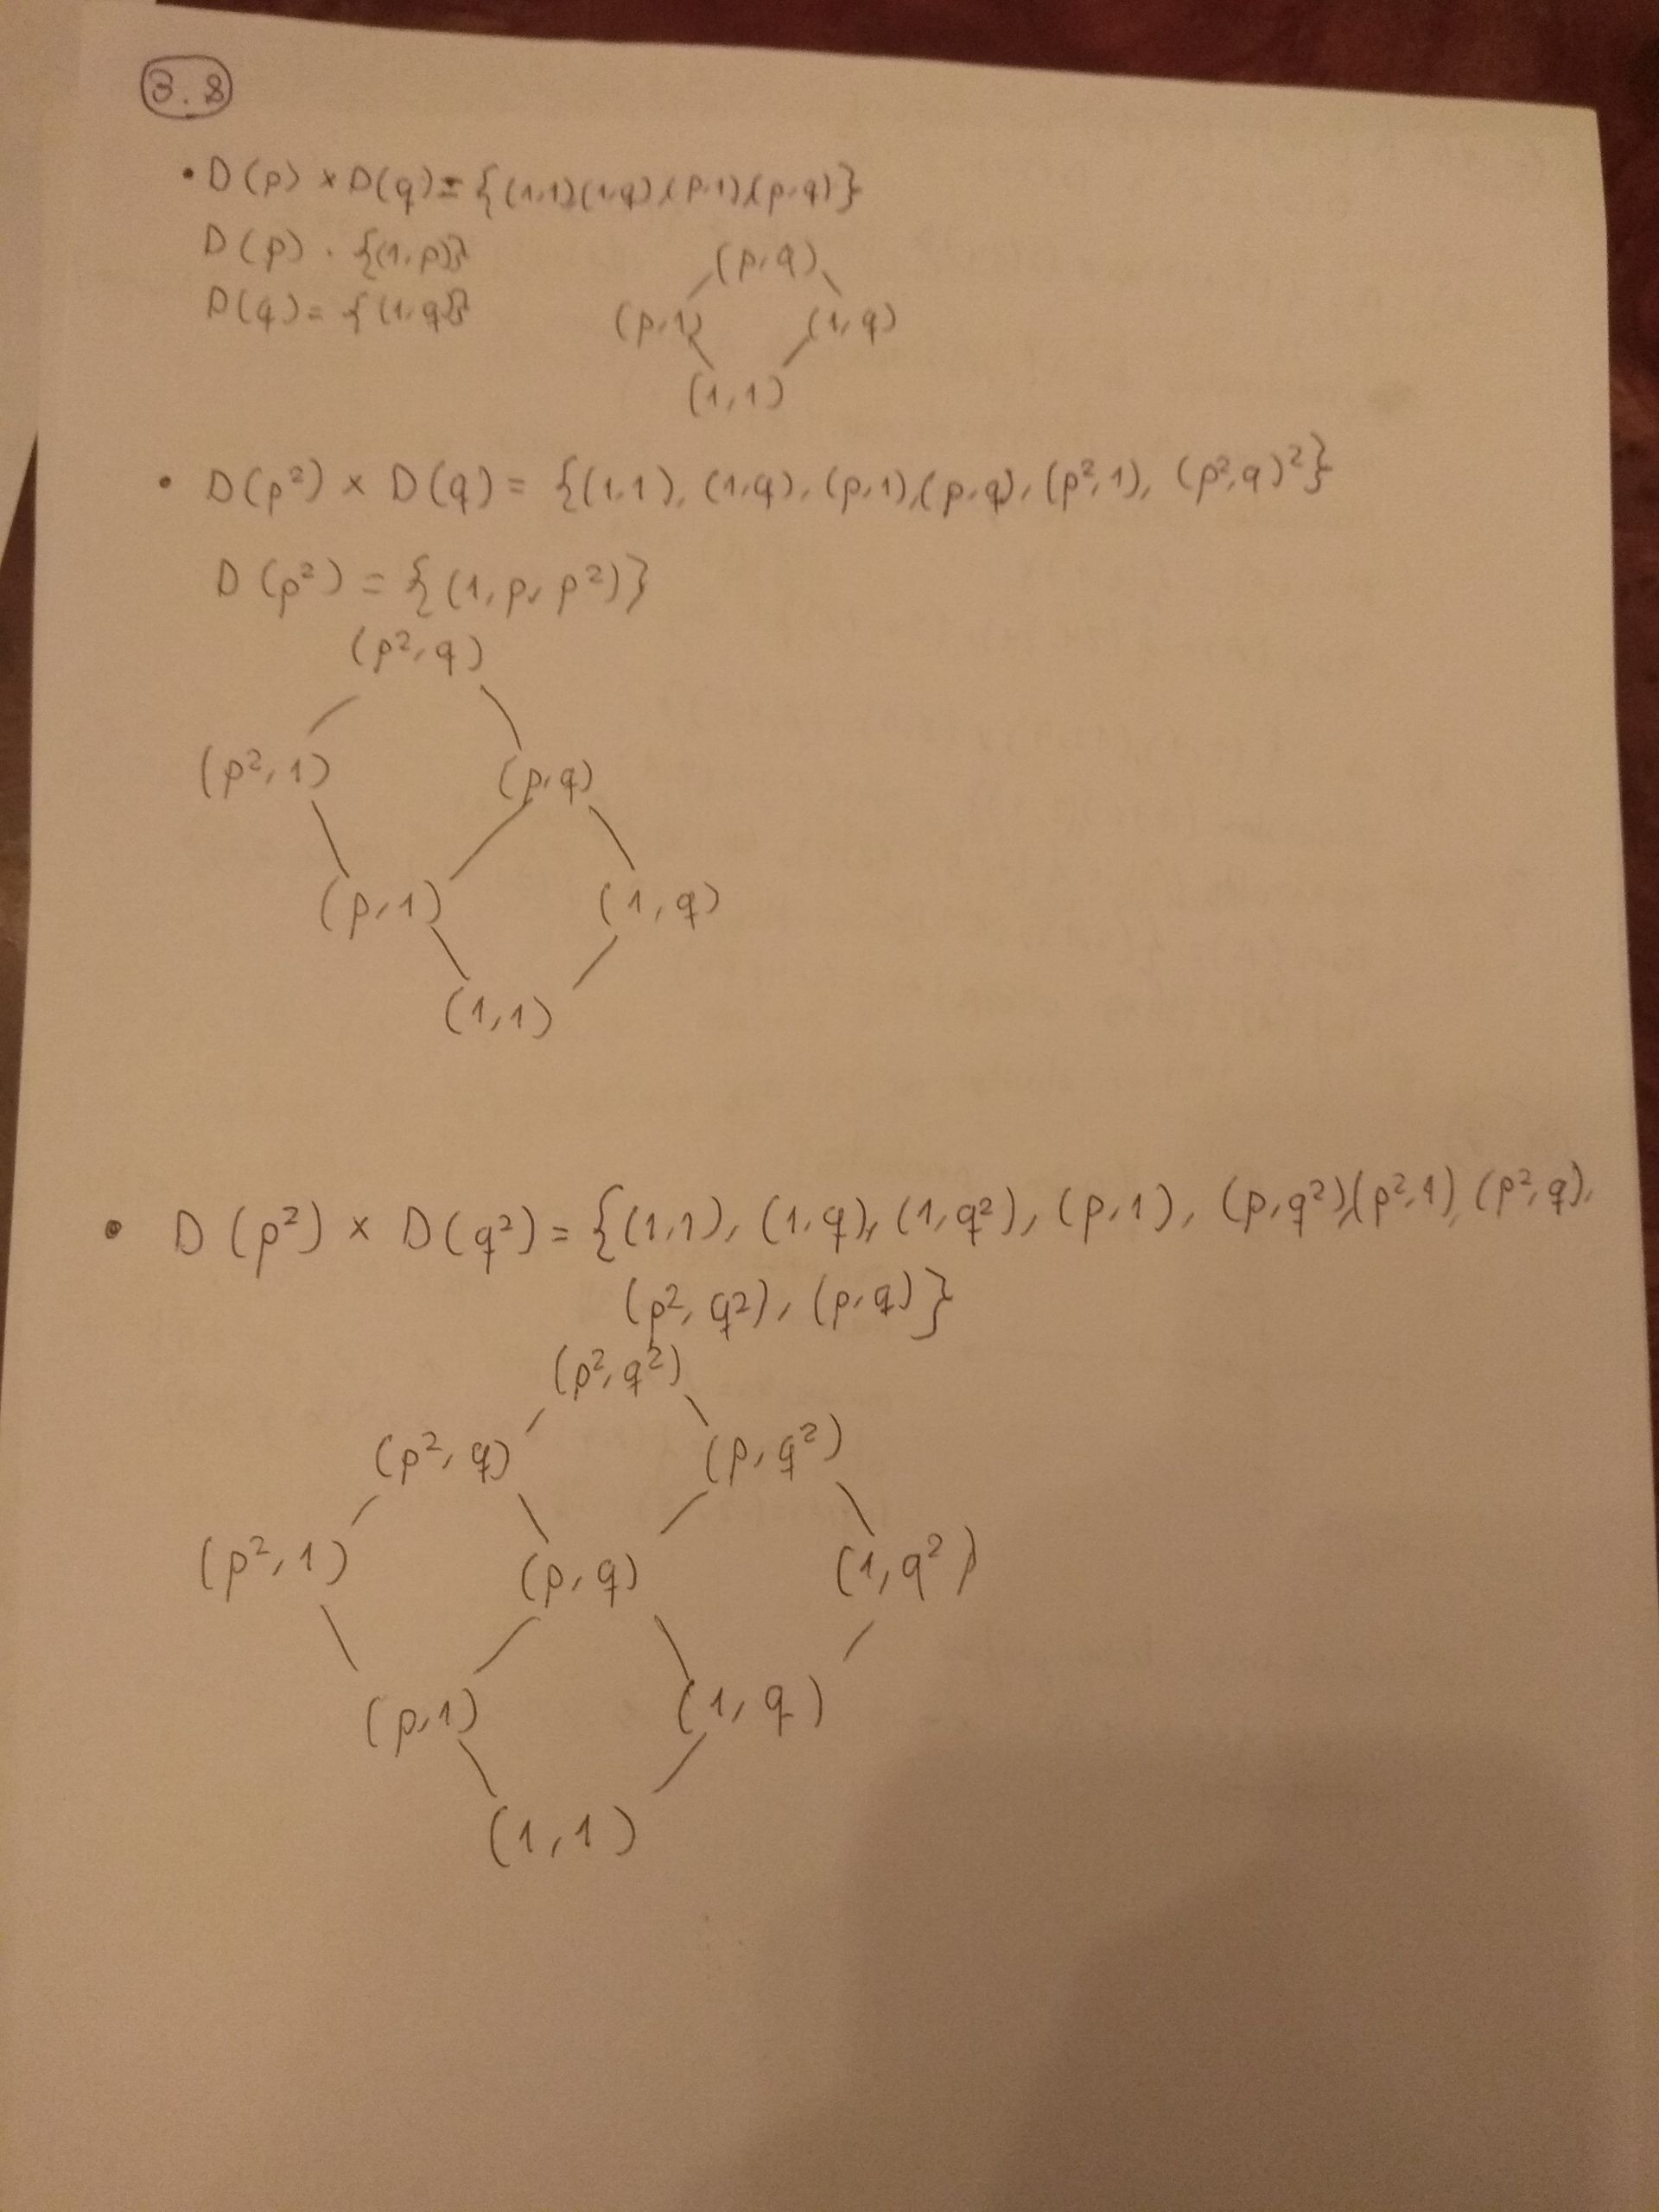 3.8
• D(p) × D(q) = {(1,1)(1,q),(p,1),(p,q)}
D(p) . {(1,p)}
D(q) = {(1,q)}
(p,q)
(p,1) (1,q)
(1,1)
• D(p²) × D(q) = {(1,1), (1,q), (p,1),(p,q), (p²,1), (p²,q)²}
D(p²) = {(1, p, p²)}
(p²,q)
(p²,1) (p,q)
(p,1) (1,q)
(1,1)
• D(p²) × D(q²) = {(1,1), (1,q), (1,q²), (p,1), (p,q²),(p²,1), (p²,q),
(p²,q²), (p,q)}
(p²,q²)
(p²,q) (p,q²)
(p²,1) (p,q) (1,q²)
(p,1) (1,q)
(1,1)